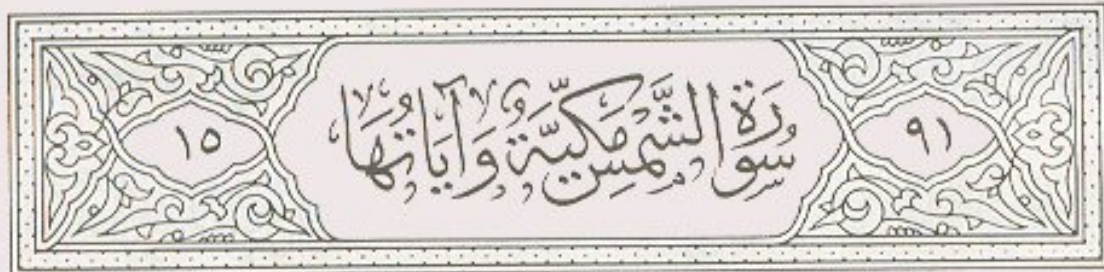 ٩١ سُورَةُ الشَّمْسِ مَكِّيَّةٌ وَآيَاتُهَا ١٥